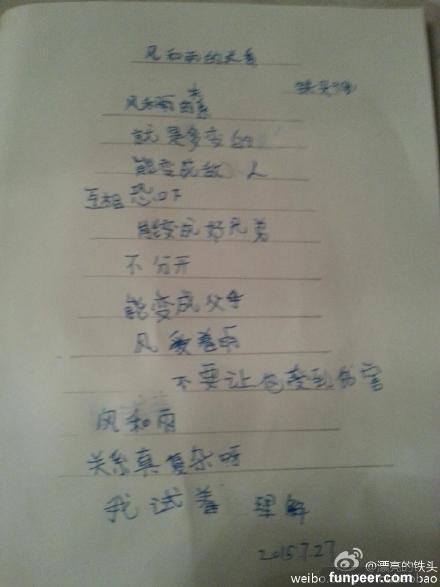 风和雨的关系
铁头
风和雨的关系
就是多变的
能变成敌人
互相恐吓
能变成好兄弟
不分开
能变成父母
风爱着雨
不要让它受到伤害
风和雨
关系真复杂呀
我试着理解
2015.7.27
@漂亮的铁头
weibo.
funpeer.com